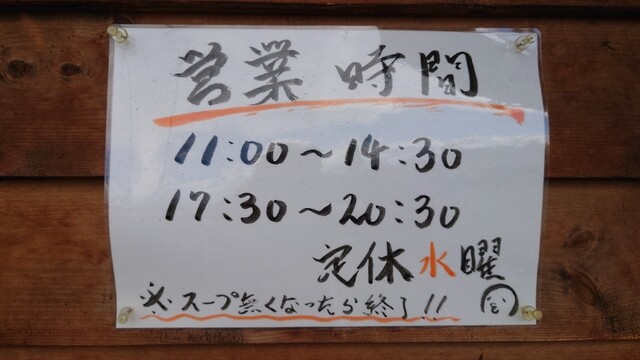 営業時間
11:00～14:30
17:30～20:30
定休水曜
※スープ無くなったら終了!!